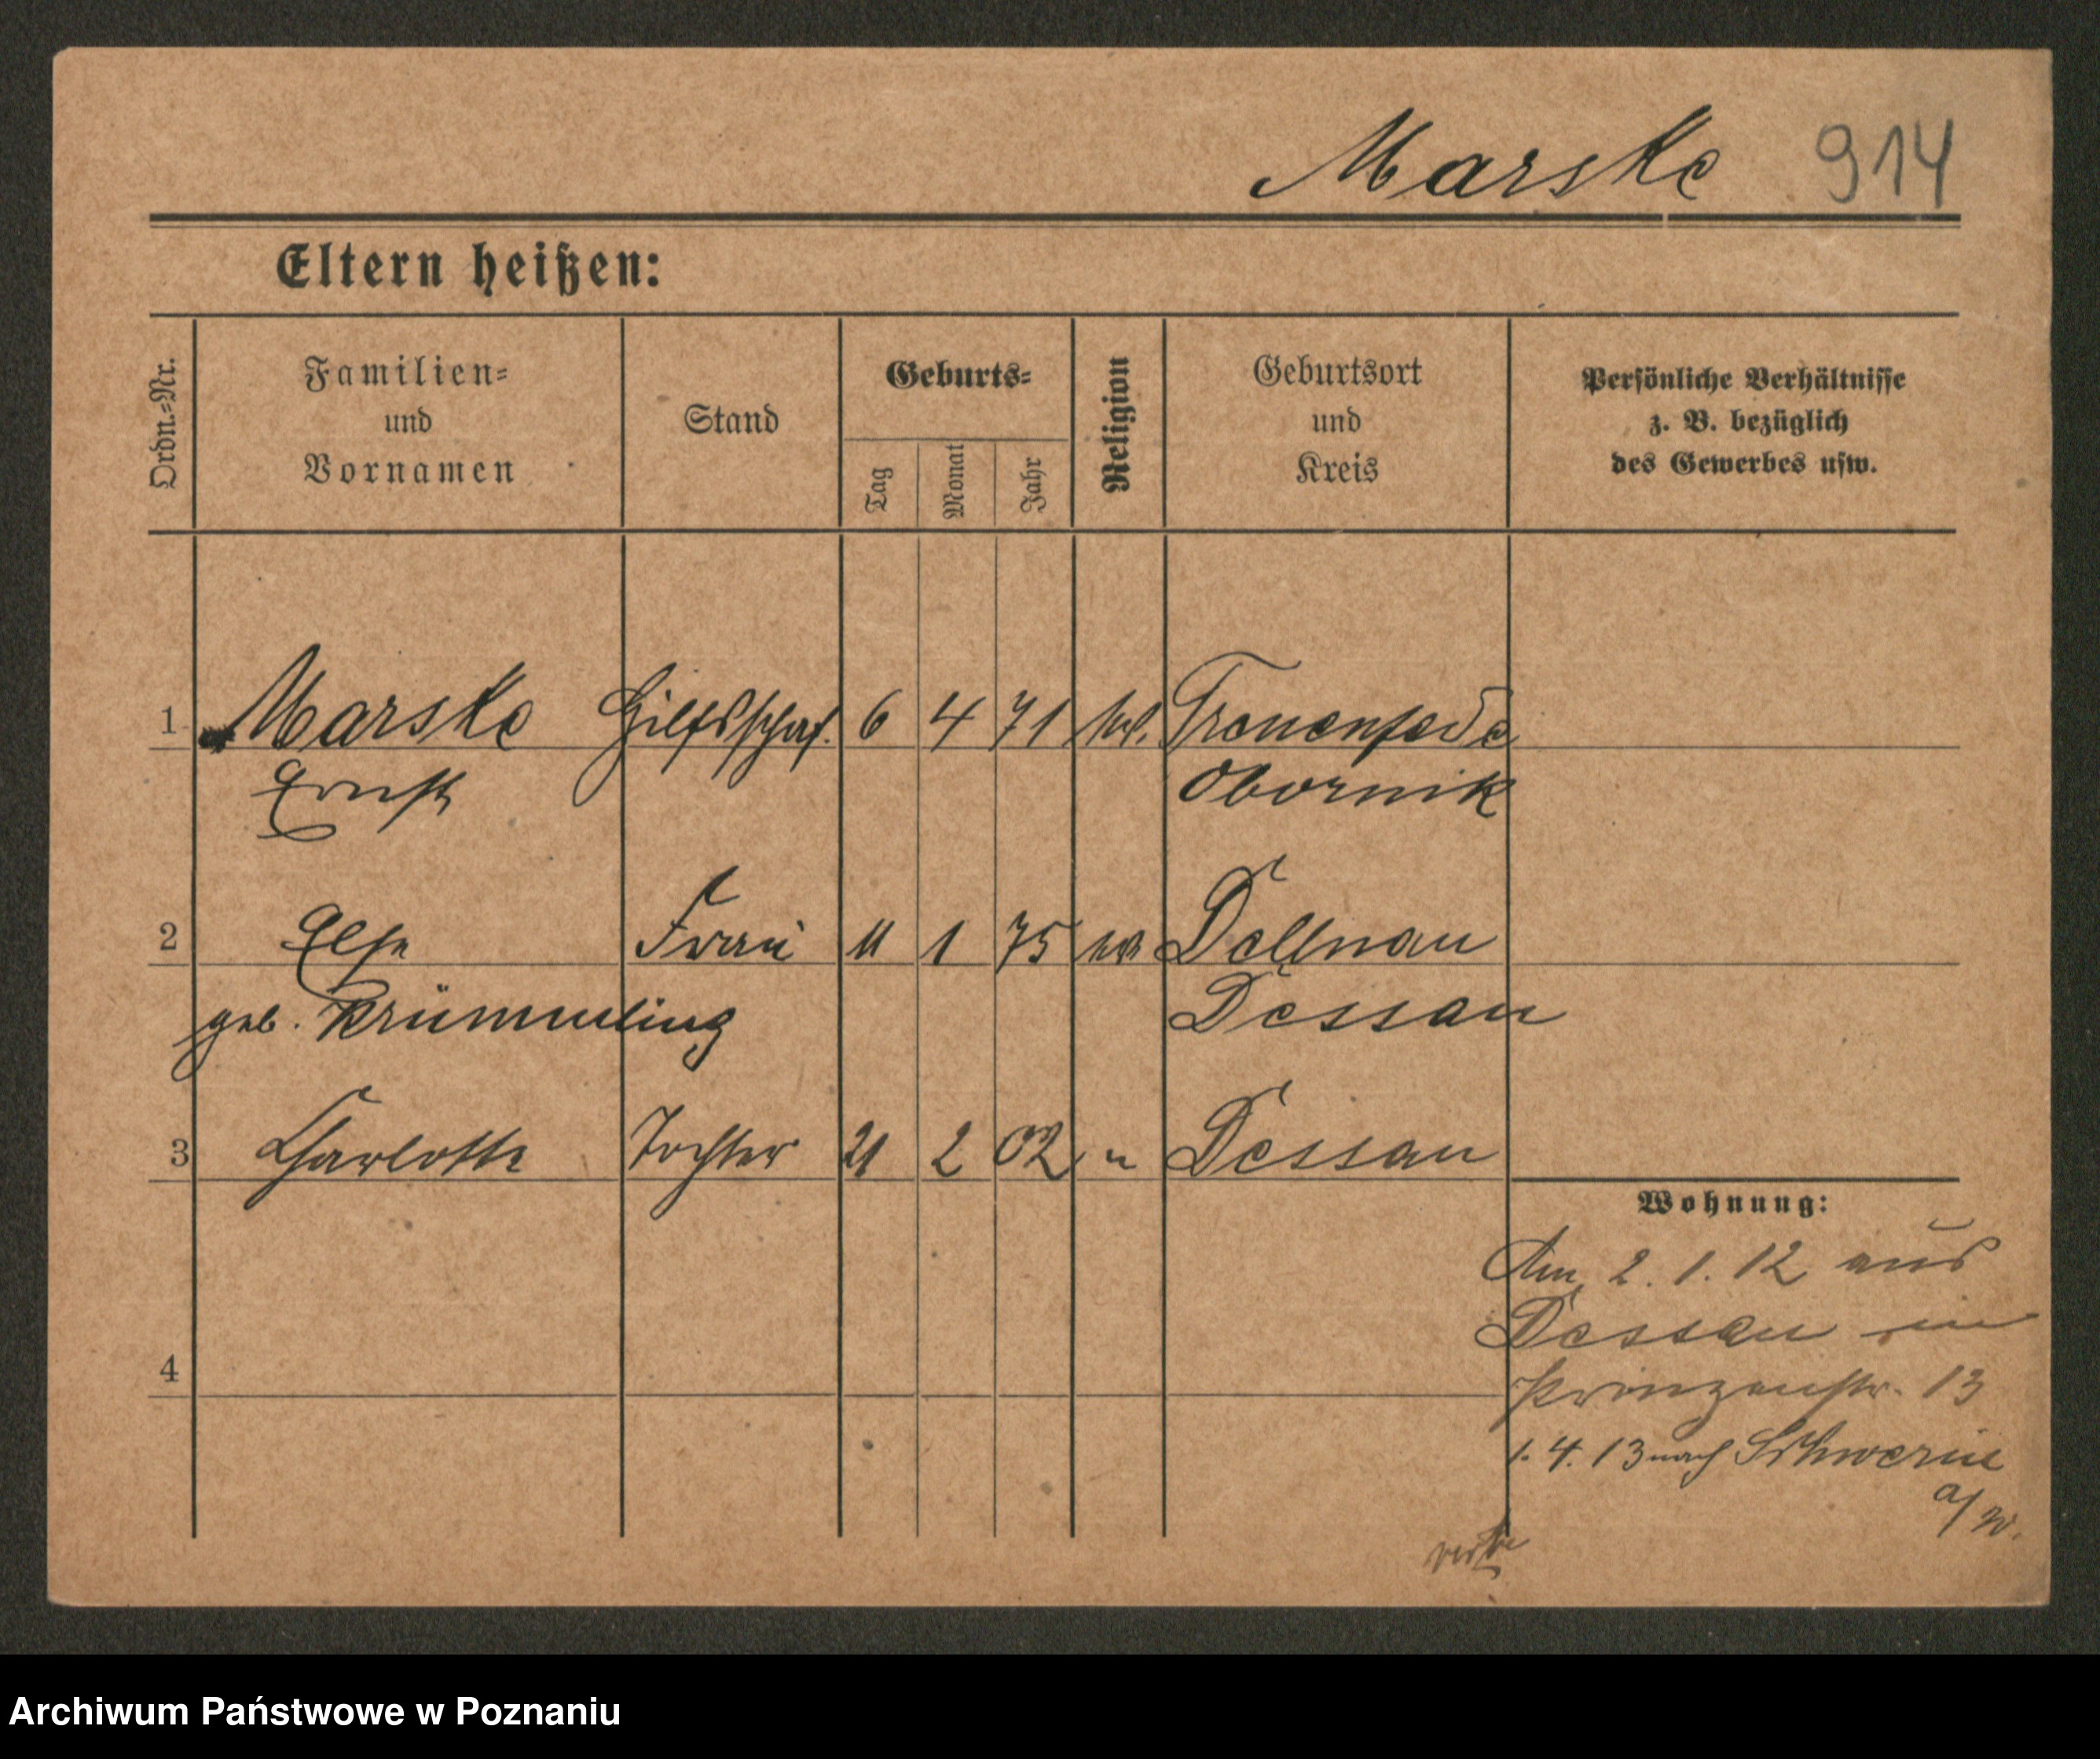 Marske 914
Eltern heißen:
Ordn.=Nr.
Familien=
und
Vornamen
Stand
Geburts=
Tag
Monat
Jahr
Religion
Geburtsort
und
Kreis
Persönliche Verhältnisse
z. B. bezüglich
des Gewerbes usw.
1 Marske Hilfsschaf. 6 4 71
Ernst Obornik
2 Else Frau 11 1 75 Dellnau
geb. Krümmling Dessau
3 Charlotte Tochter 21 2 02 " Dessau
Wohnung:
Am 2. 1. 12 aus
Dessau in
4
Prinzenstr. 13
1. 4. 13 nach Schwerin
a/W.
Archiwum Państwowe w Poznaniu